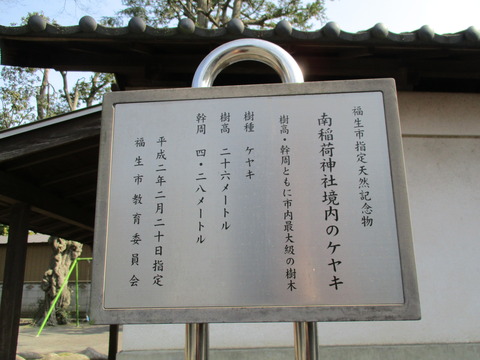 福生市指定天然記念物
南稲荷神社境内のケヤキ
樹高・幹周ともに市内最大級の樹木
樹種 ケヤキ
樹高 二十六メートル
幹周 四・二八メートル
平成二年二月二十日指定
福生市教育委員会